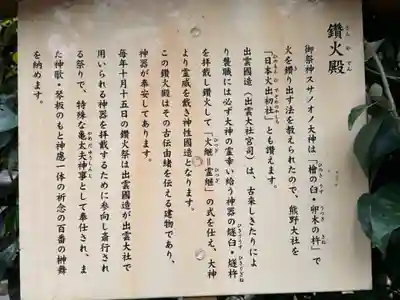 鑽火殿
さんかでん
御祭神スサノオノ大神は「檜の臼・卯木の杵」で
火を鑽り出す法を教えられたので、熊野大社を
「日本火出初社」とも讃えます。
出雲國造(出雲大社宮司)は、古来しきたりによ
り襲職には必ず大神の霊幸い給う神器の燧臼・燧杵
を拝戴し鑽火して「火継=霊継」の式を仕え、大神
より霊威を戴き神性國造となります。
この鑽火殿はその古伝由緒を伝える建物であり、
神器が奉安してあります。
毎年十月十五日の鑽火祭は出雲國造が出雲大社で
用いられる神器を拝戴するために参向し斎行され
る祭りで、特殊な亀太夫神事として奉仕され、ま
た神歌・琴板のもと神應一体の祈念の百番の榊舞
を納めます。